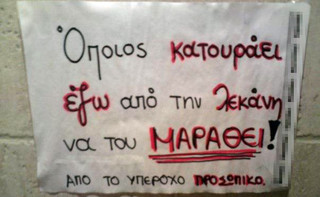 Όποιος κατουράει
έξω από την λεκάνη
να του ΜΑΡΑΘΕΙ!
ΑΠΟ ΤΟ ΥΠΕΡΟΧΟ ΠΡΟΣΩΠΙΚΟ.